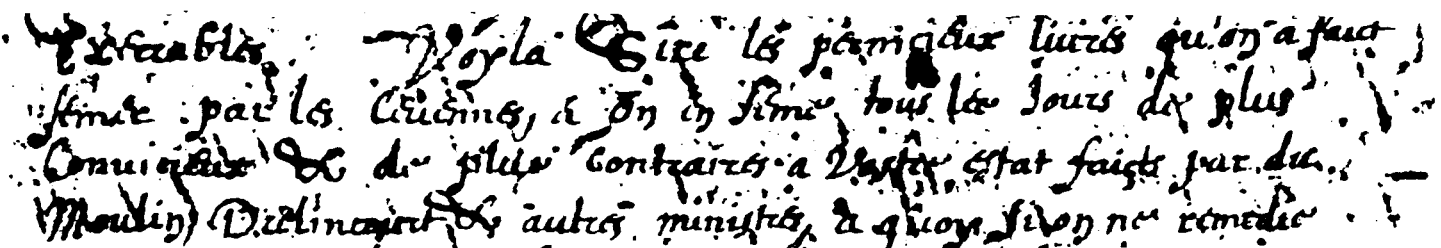 Execrables. Voyla Sire les pernicieux liures qu'on a faict
semer par les Ceuennes, & on en seme tous les Jours de plus
Conuicieux & de plus contraires a Vostre estat faicts par du
Moulin, Drelincourt & autres ministres, a quoy si on ne remedie